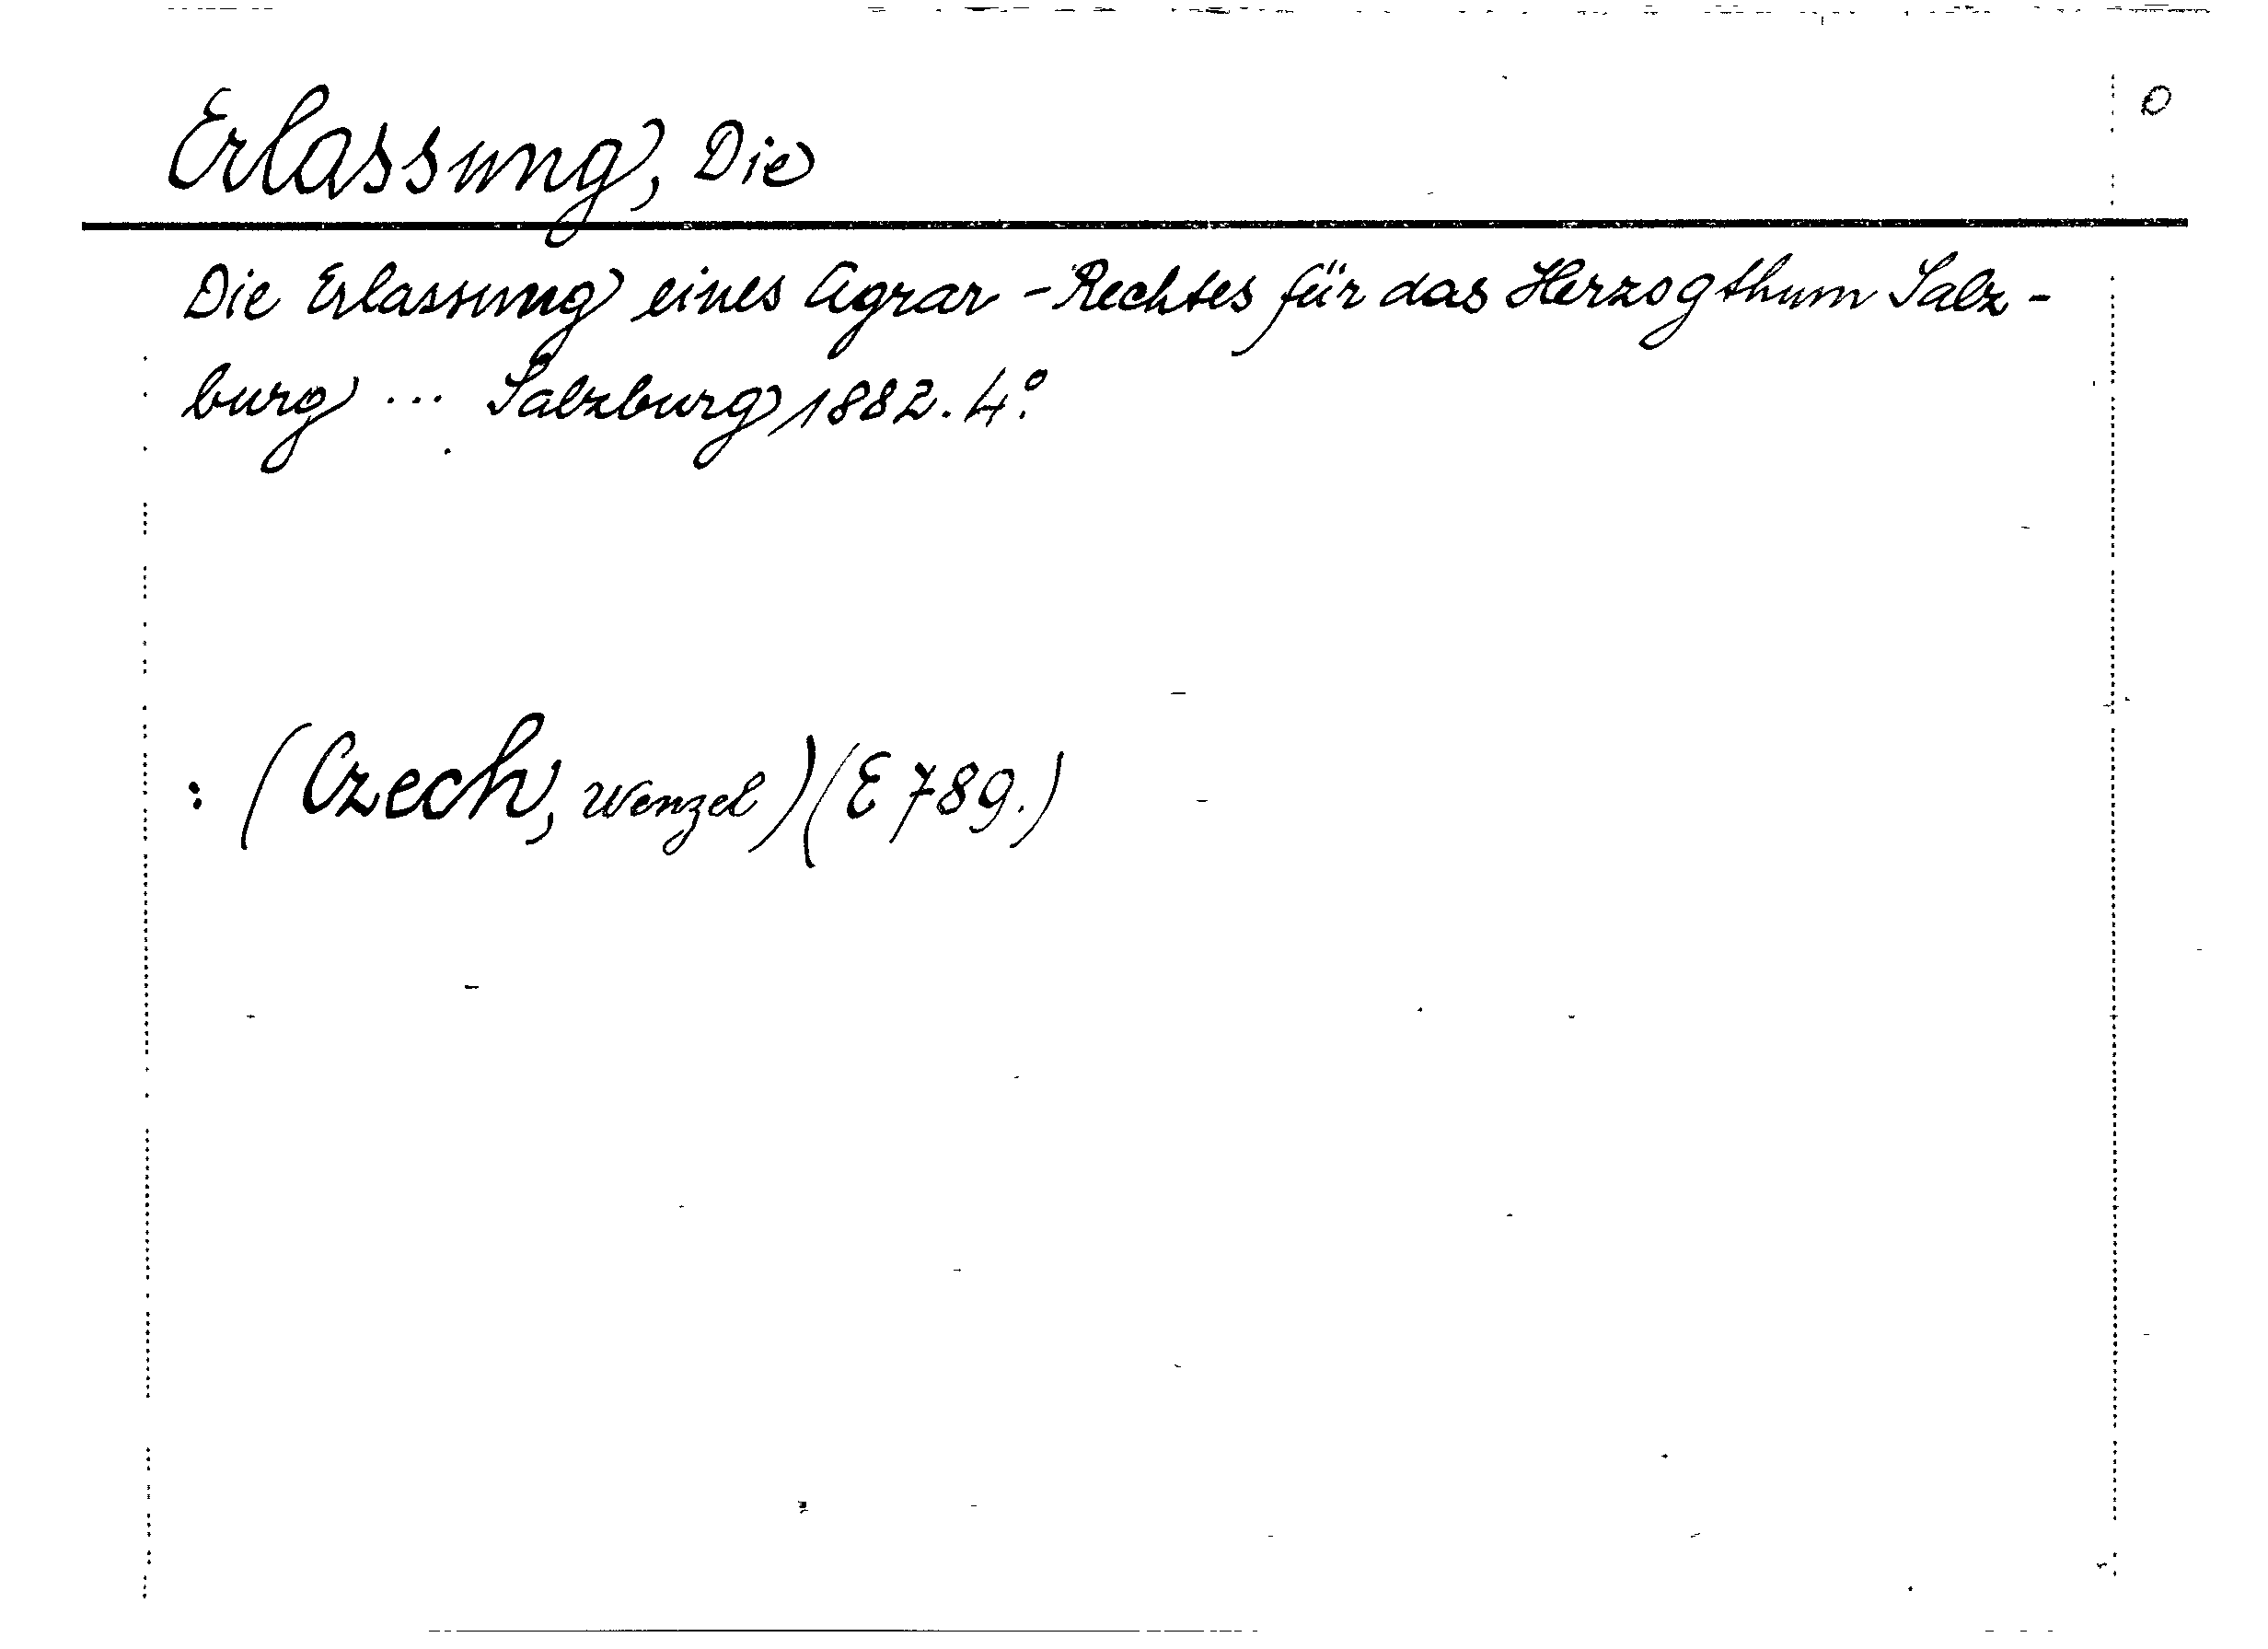 Erlassung, Die
Die Erlassung eines Agrar-Rechtes für das Herzogthum Salz-
burg ... Salzburg 1882. 4°.
: (Czech, Wenzel) (E 789.)